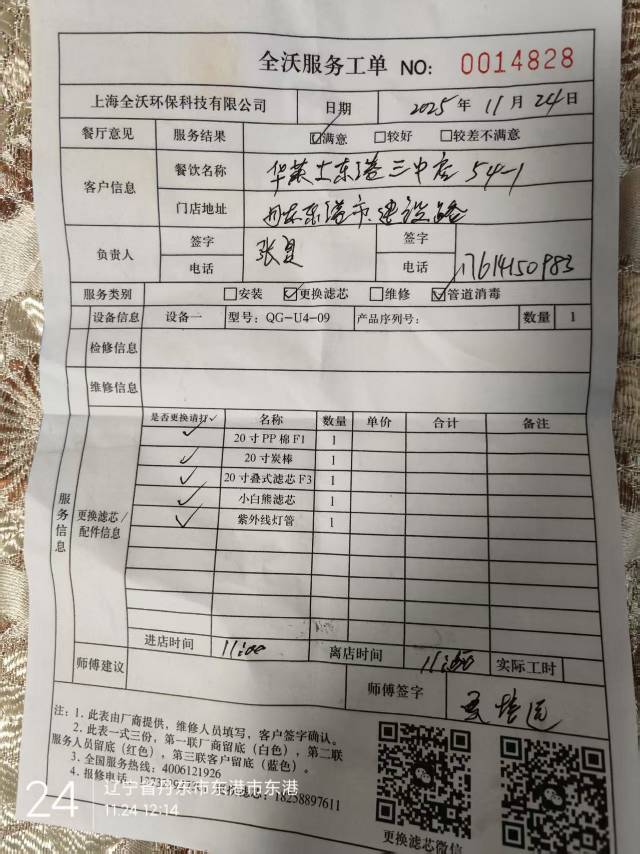 全沃服务工单 NO: 0014828
上海全沃环保科技有限公司 日期 2025年11月24日
餐厅意见 服务结果 ☑满意 □较好 □较差不满意
客户信息 餐饮名称 华莱士东港三中店 54-1
门店地址 丹东东港市建设路
负责人 签字 张夏 签字
电话 电话 17614150983
服务类别 □安装 ☑更换滤芯 □维修 ☑管道消毒
设备信息 设备一 型号: QG-U4-09 产品序列号: 数量 1
检修信息
维修信息
服务信息
更换滤芯/配件信息
是否更换请打✓ 名称 数量 单价 合计 备注
✓ 20寸PP棉F1 1
✓ 20寸炭棒 1
✓ 20寸叠式滤芯F3 1
✓ 小白熊滤芯 1
✓ 紫外线灯管 1
进店时间 11:00 离店时间 实际工时
师傅建议 师傅签字
注: 1. 此表由厂商提供，维修人员填写，客户签字确认。
2. 此表一式三份，第一联厂商留底（白色），第二联
服务人员留底（红色），第三联客户留底（蓝色）。
3. 全国服务热线: 4006121926
4. 报修电话 18258897611
更换滤芯微信
24 辽宁省丹东市东港市东港
11.24 12:14